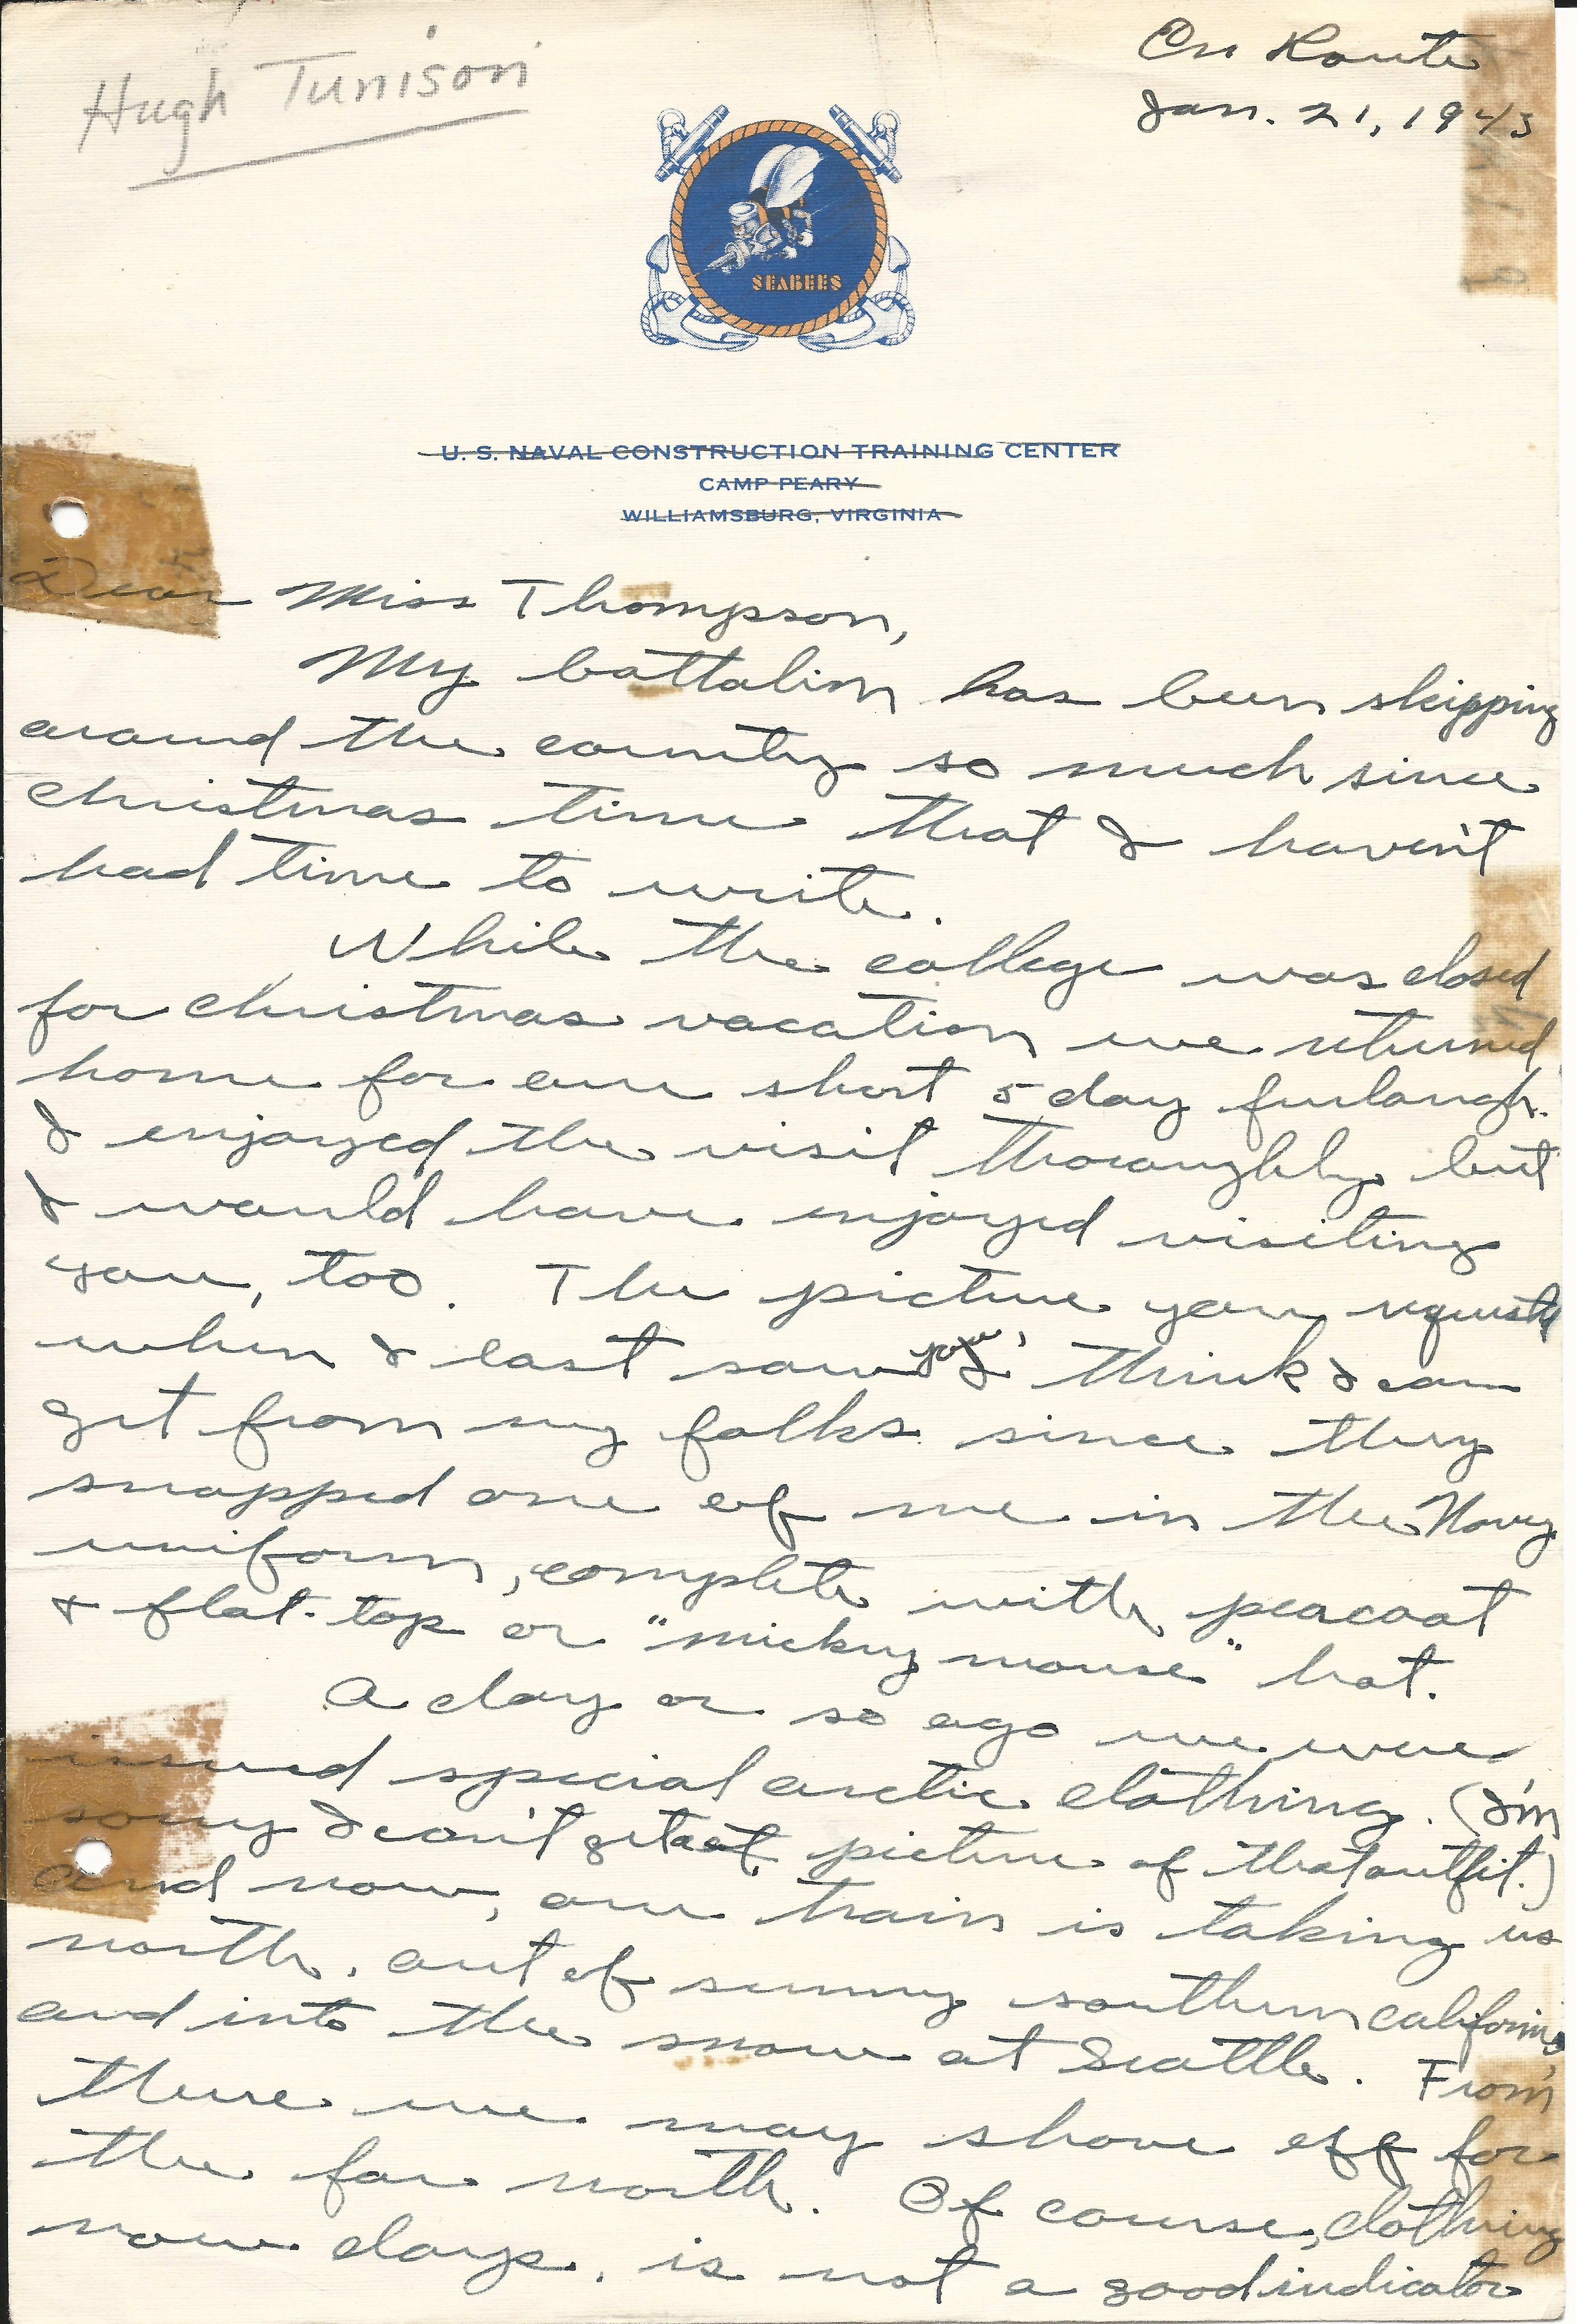 Hugh Tunison
En Route
Jan. 21, 1943
SEABEES
U. S. NAVAL CONSTRUCTION TRAINING CENTER
CAMP PEARY
WILLIAMSBURG, VIRGINIA
Dear Miss Thompson,
My battalion has been skipping
around the country so much since
christmas time that I haven't
had time to write.
While the college was closed
for christmas vacation we returned
home for our short 5 day furlough.
I enjoyed the visit thoroughly but
I would have enjoyed visiting
you, too. The picture you requested
when I last saw you, I think I can
get from my folks since they
snapped one of me in the Navy
uniform, complete with peacoat
& flat-top or "mickey mouse" hat.
A day or so ago we were
issued special arctic clothing. (I'm
sorry I can't get a picture of that outfit.)
And now, our train is taking us
north, out of sunny southern California,
and into the snow at Seattle. From
there we may shove off for
the far north. Of course, clothing
now days, is not a good indicator